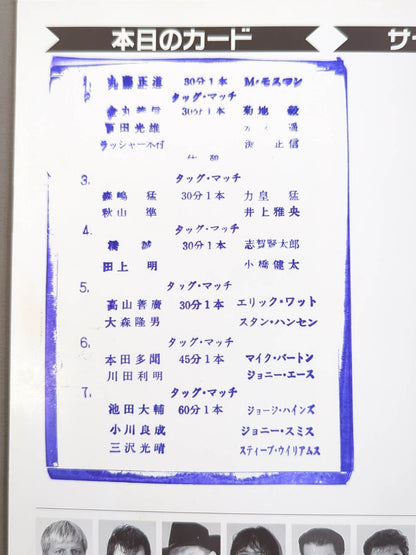 本日のカード
サ
1. 丸藤正道 30分1本 M・モスマン
タッグ・マッチ
金丸義信 30分1本 菊地 毅
百田光雄
ラッシャー木村 正信
休憩
3. タッグ・マッチ
森嶋 猛 30分1本 力皇 猛
秋山 準 井上雅央
4. タッグ・マッチ
橋 誠 30分1本 志賀賢太郎
田上 明 小橋健太
5. タッグ・マッチ
高山善廣 30分1本 エリック・ワット
大森隆男 スタン・ハンセン
6. タッグ・マッチ
本田多聞 45分1本 マイク・バートン
川田利明 ジョニー・エース
7. タッグ・マッチ
池田大輔 60分1本 ジョージ・ハインズ
小川良成 ジョニー・スミス
三沢光晴 スティーブ・ウイリアムス